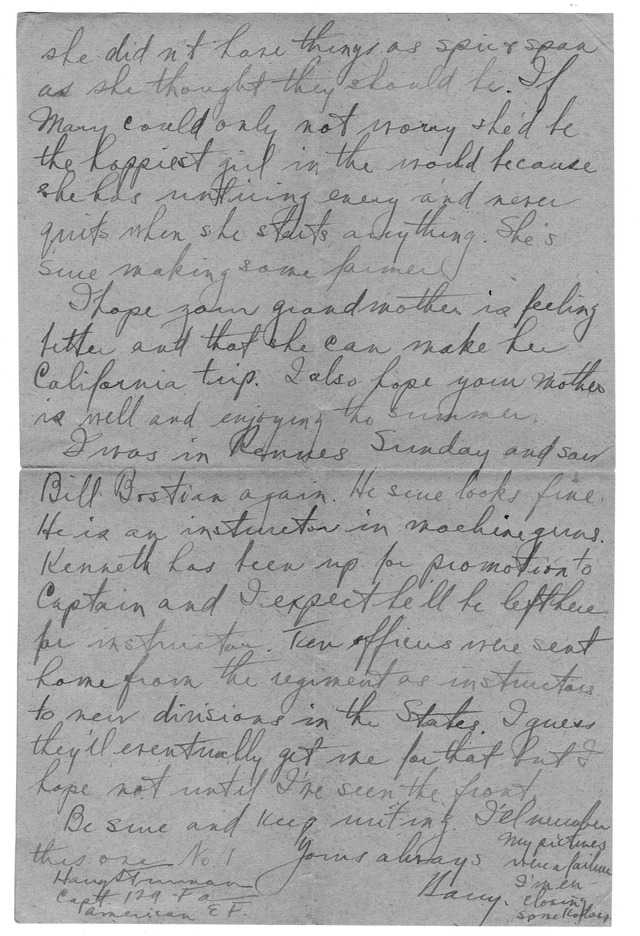 she didn't have things as spic & span
as she thought they should be. If
Mary could only not worry she'd be
the happiest girl in the world because
she has untiring energy and never
quits when she starts anything. She's
sure making some farmer
I hope your grandmother is feeling
better and that she can make her
California trip. I also hope your Mother
is well and enjoying the summer.
I was in Rennes Sunday and saw
Bill Bostian again. He sure looks fine.
He is an instructor in machine guns.
Kenneth has been up for promotion to
Captain and I expect he'll be left here
for instructor. Ten officers were sent
home from the regiment as instructors
to new divisions in the States. I guess
they'll eventually get me for that but I
hope not until I've seen the front.
Be sure and keep writing. I'll number
this one No. 1 Yours always
Harry.
Harry S Truman
Capt 129 F a
American E F.
My pictures
were a failure
I'm en-
closing
some Kodaks